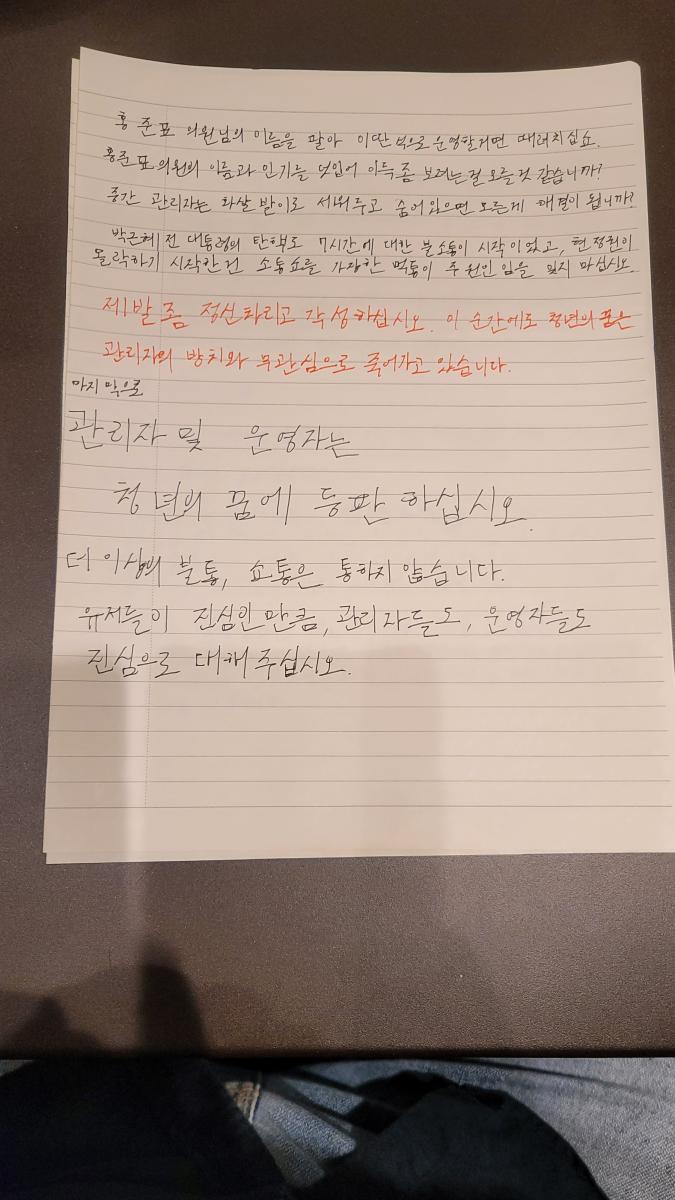 홍준표 의원님의 이름을 팔아 이딴식으로 운영할거면 때려치십쇼.
홍준표 의원의 이름과 인기를 덧입어 이득 좀 보려는걸 모를것 같습니까?
중간 관리자는 화살 받이로 세워두고 숨어있으면 모든게 해결이 됩니까?
박근혜 전 대통령의 탄핵도 7시간에 대한 불소통이 시작이었고, 현 정권이
몰락하기 시작한건 소통쇼를 가장한 먹통이 주 원인 임을 잊지 마십시오.
제발 좀 정신차리고 각성하십시오. 이 순간에도 청년의 꿈은
관리자의 방치와 무관심으로 죽어가고 있습니다.
마지막으로
관리자 및 운영자는
청년의 꿈에 등판 하십시오.
더 이상의 불통, 쇼통은 통하지 않습니다.
유저들이 진심인 만큼, 관리자들도, 운영자들도
진심으로 대해 주십시오.